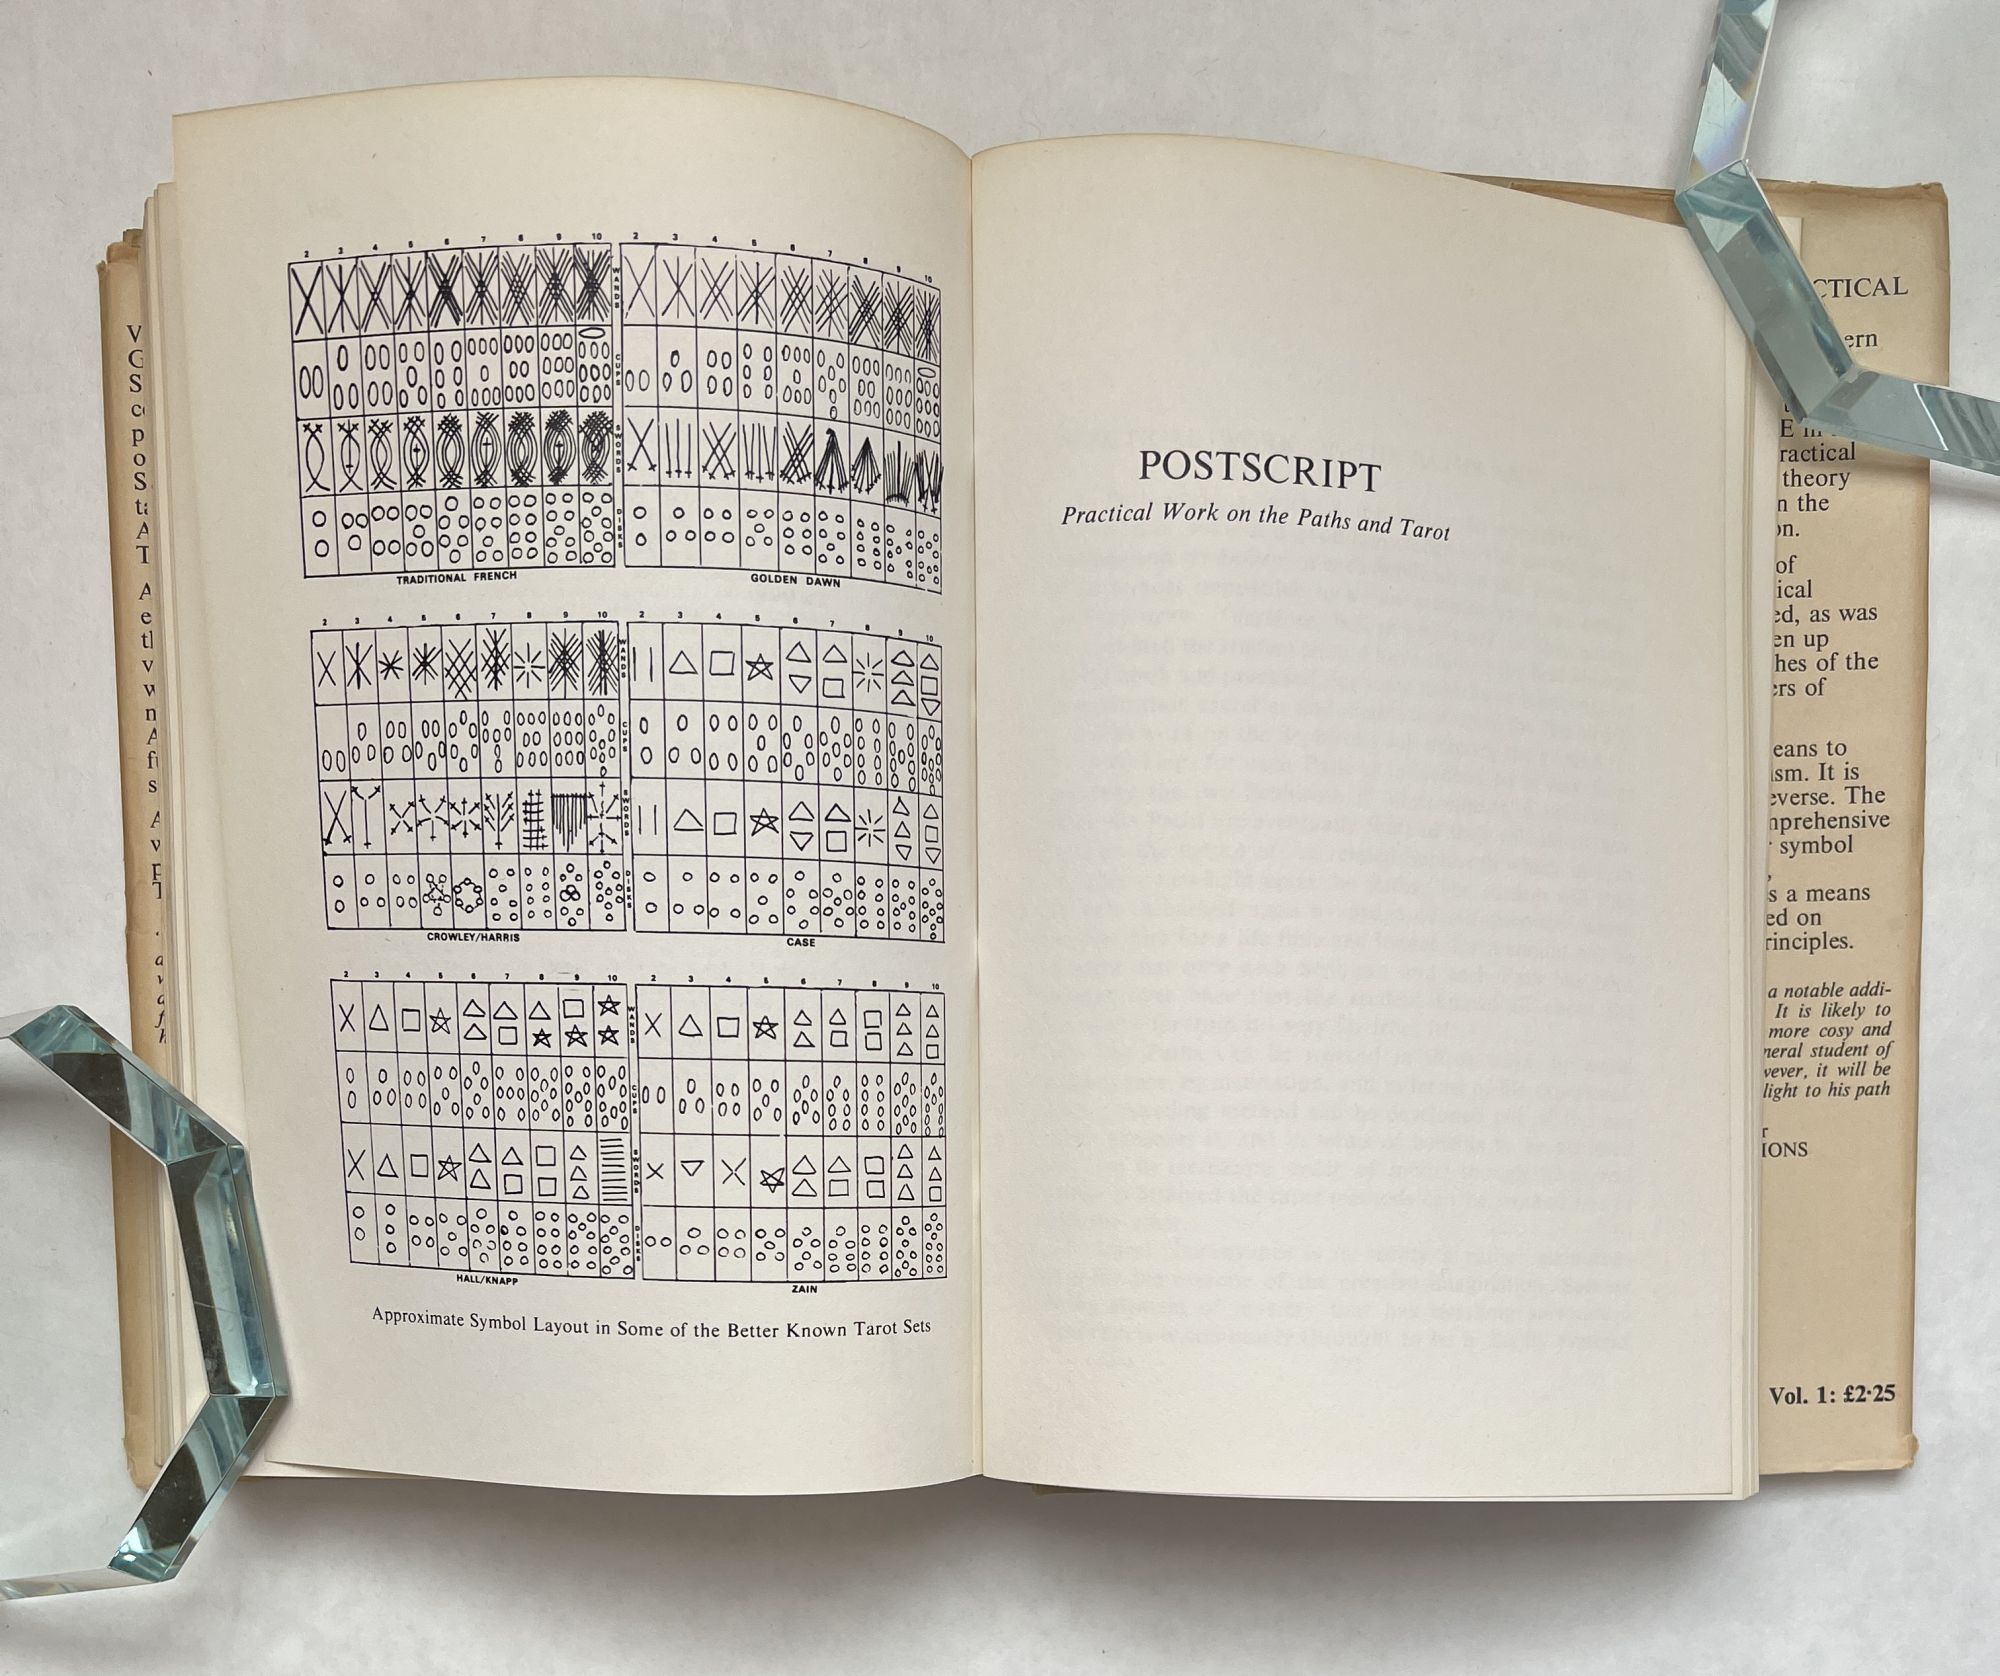 2 3 4 5 6 7 8 9 10
WANDS
CUPS
SWORDS
DISKS
TRADITIONAL FRENCH
2 3 4 5 6 7 8 9 10
GOLDEN DAWN
2 3 4 5 6 7 8 9 10
WANDS
CUPS
SWORDS
DISKS
CROWLEY/HARRIS
2 3 4 5 6 7 8 9 10
CASE
2 3 4 5 6 7 8 9 10
WANDS
CUPS
SWORDS
DISKS
HALL/KNAPP
2 3 4 5 6 7 8 9 10
ZAIN
Approximate Symbol Layout in Some of the Better Known Tarot Sets
POSTSCRIPT
Practical Work on the Paths and Tarot
CTICAL
ern
E in
ractical
theory
n the
on.
of
ical
ed, as was
en up
hes of the
ers of
eans to
ism. It is
everse. The
nprehensive
symbol
s a means
ed on
rinciples.
a notable addi-
It is likely to
more cosy and
neral student of
vever, it will be
light to his path
IONS
Vol. 1: £2·25